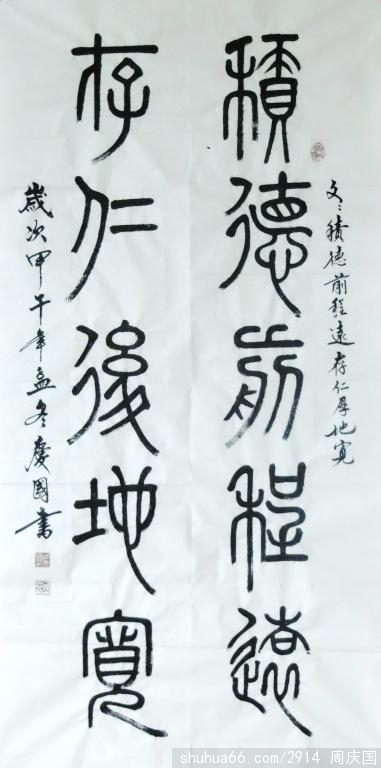 文：積德前程遠存仁厚地寬
積德前程遠
存仁後地寬
歲次甲午年孟冬慶國書
shuhua66.com/2914 周庆国